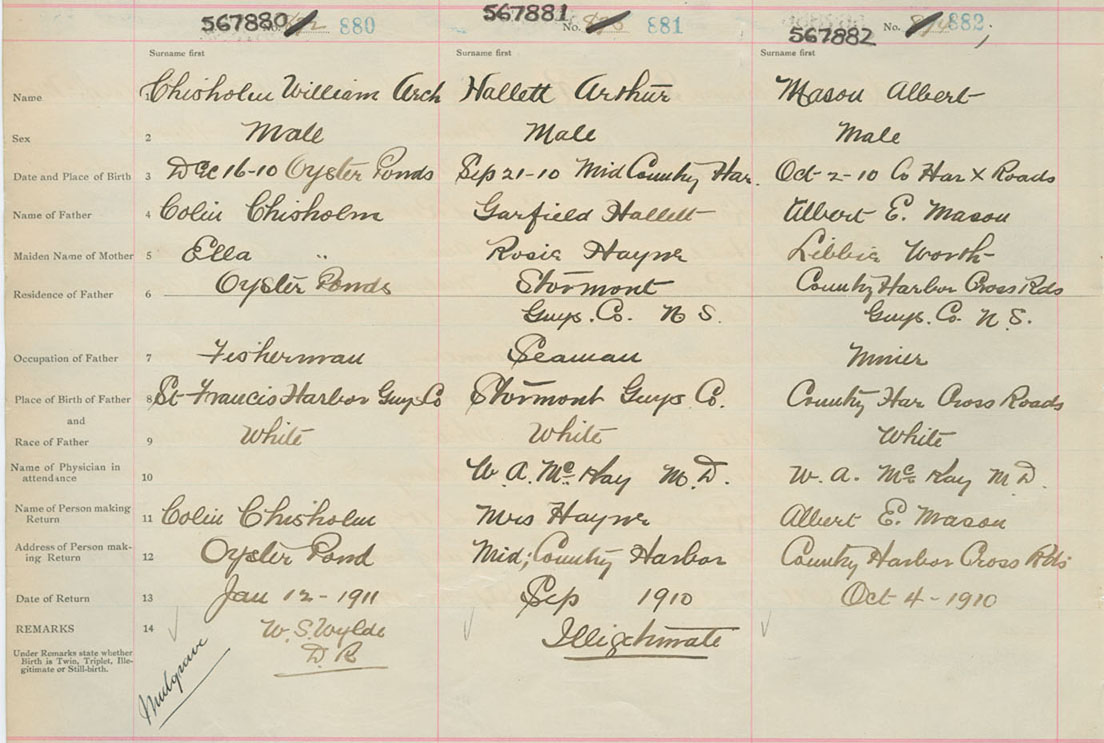 567880 No. 880
567881 No. 881
567882 No. 882
Surname first Surname first Surname first
Name 1 Chisholm William Arch Hallett Arthur Mason Albert
Sex 2 Male Male Male
Date and Place of Birth 3 Dec 16-10 Oyster Ponds Sep 21-10 Mid Country Har. Oct-2-10 Co Har X Roads
Name of Father 4 Colin Chisholm Garfield Hallett Albert E. Mason
Maiden Name of Mother 5 Ella " Rosie Hayne Libbie Worth
Residence of Father 6 Oyster Ponds Stormont Country Harbor Cross Rds
Guys. Co. N S. Guys. Co. N. S.
Occupation of Father 7 Fisherman Seaman Miner
Place of Birth of Father 8 St Francis Harbor Guys Co Stormont Guys Co. Country Har Cross Roads
and
Race of Father 9 White White White
Name of Physician in attendance 10 W. A. McKay M.D. W. A. McKay M D.
Name of Person making Return 11 Colin Chisholm Mrs Hayne Albert E. Mason
Address of Person making Return 12 Oyster Pond Mid; Country Harbor Country Harbor Cross Rds
Date of Return 13 Jan 12-1911 Sep 1910 Oct 4-1910
REMARKS 14 W. S. Wylde Illigetimate
D. R
Under Remarks state whether
Birth is Twin, Triplet, Ille-
gitimate or Still-birth.
Mulgrave